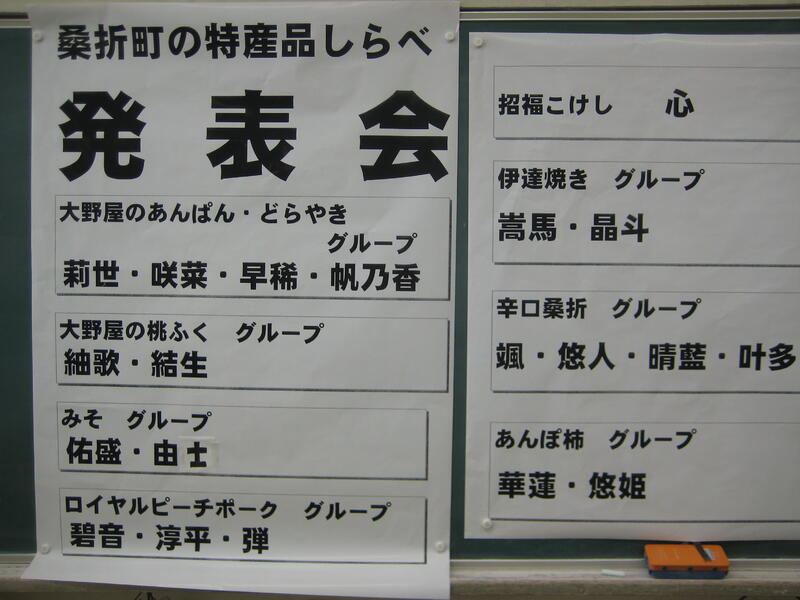 桑折町の特産品しらべ
発表会
大野屋のあんぱん・どらやき
グループ
莉世・咲菜・早稀・帆乃香
大野屋の桃ふく　グループ
紬歌・結生
みそ　グループ
佑盛・由士
ロイヤルピーチポーク　グループ
碧音・淳平・弾
招福こけし　心
伊達焼き　グループ
嵩馬・晶斗
辛口桑折　グループ
颯・悠人・晴藍・叶多
あんぽ柿　グループ
華蓮・悠姫